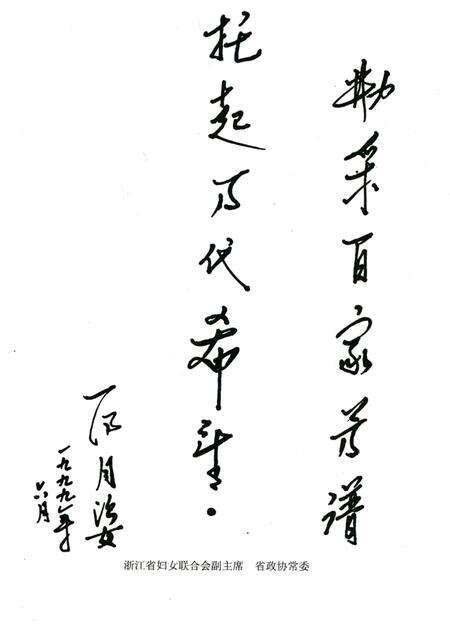 勤采百家芳谱
托起下代希望.
月
一九九九年
六月
浙江省妇女联合会副主席　省政协常委